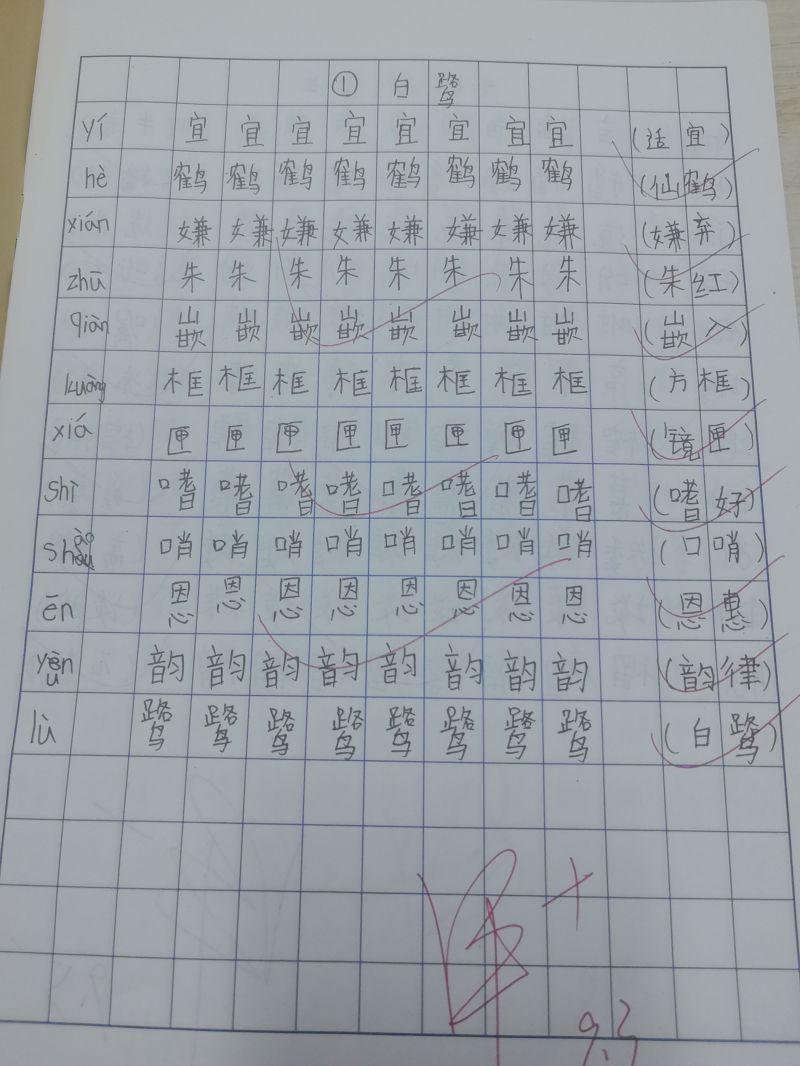 ① 白鹭
yí 宜 宜 宜 宜 宜 宜 宜 宜 (适宜)
hè 鹤 鹤 鹤 鹤 鹤 鹤 鹤 鹤 (仙鹤)
xián 嫌 嫌 嫌 嫌 嫌 嫌 嫌 嫌 (嫌弃)
zhū 朱 朱 朱 朱 朱 朱 朱 朱 (朱红)
qiàn 嵌 嵌 嵌 嵌 嵌 嵌 嵌 嵌 (嵌入)
kuàng 框 框 框 框 框 框 框 框 (方框)
xiá 匣 匣 匣 匣 匣 匣 匣 匣 (镜匣)
shì 嗜 嗜 嗜 嗜 嗜 嗜 嗜 嗜 (嗜好)
哨 哨 哨 哨 哨 哨 哨 哨 (口哨)
ēn 恩 恩 恩 恩 恩 恩 恩 恩 (恩惠)
韵 韵 韵 韵 韵 韵 韵 韵 (韵律)
lù 鹭 鹭 鹭 鹭 鹭 鹭 鹭 鹭 (白鹭)
9.3